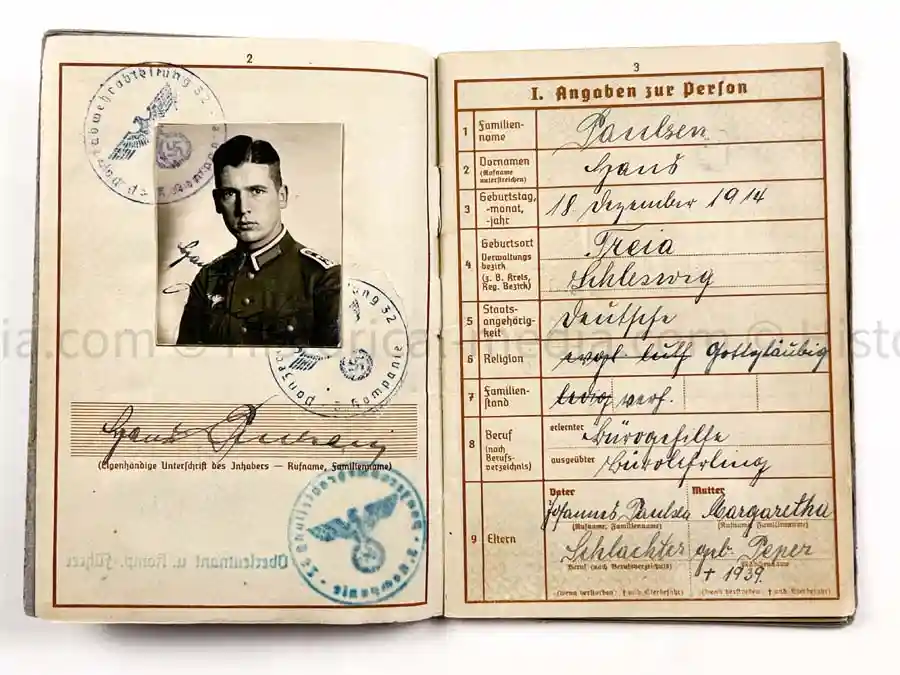 2
Panzerabwehrabteilung 32
Kompanie
Hans
Panzerabwehrabteilung 32
Kompanie
Hans Paulsen
(Eigenhändige Unterschrift des Inhabers — Rufname, Familienname)
Oberleutnant u. Komp.-Führer
3
I. Angaben zur Person
1 Familien-
name
Paulsen
2 Vornamen
(Rufname
unterstreichen)
Hans
3 Geburtstag,
-monat,
-jahr
18 Dezember 1914
4 Geburtsort
Verwaltungs
bezirk
(z. B. Kreis,
Reg. Bezirk)
Treia
Schleswig
5 Staats-
angehörig-
keit
Deutsche
6 Religion
evgl. luth Gottgläubig
7 Familien-
stand
ledig verh.
8 Beruf
(nach
Berufs-
verzeichnis)
erlernter
Bürogehilfe
ausgeübter
Bürolehrling
9 Eltern
Vater
Johannes Paulsen
(Rufname, Familienname)
Schlachter
Beruf (nach Berufsverzeichnis)
(wenn verstorben † und Sterbejahr)
Mutter
Margaretha
(Rufname Familienname)
geb. Peper
Mädchenname
† 1939.
(wenn verstorben, † und Sterbejahr)
ia.com © Historical-media.com © Histo